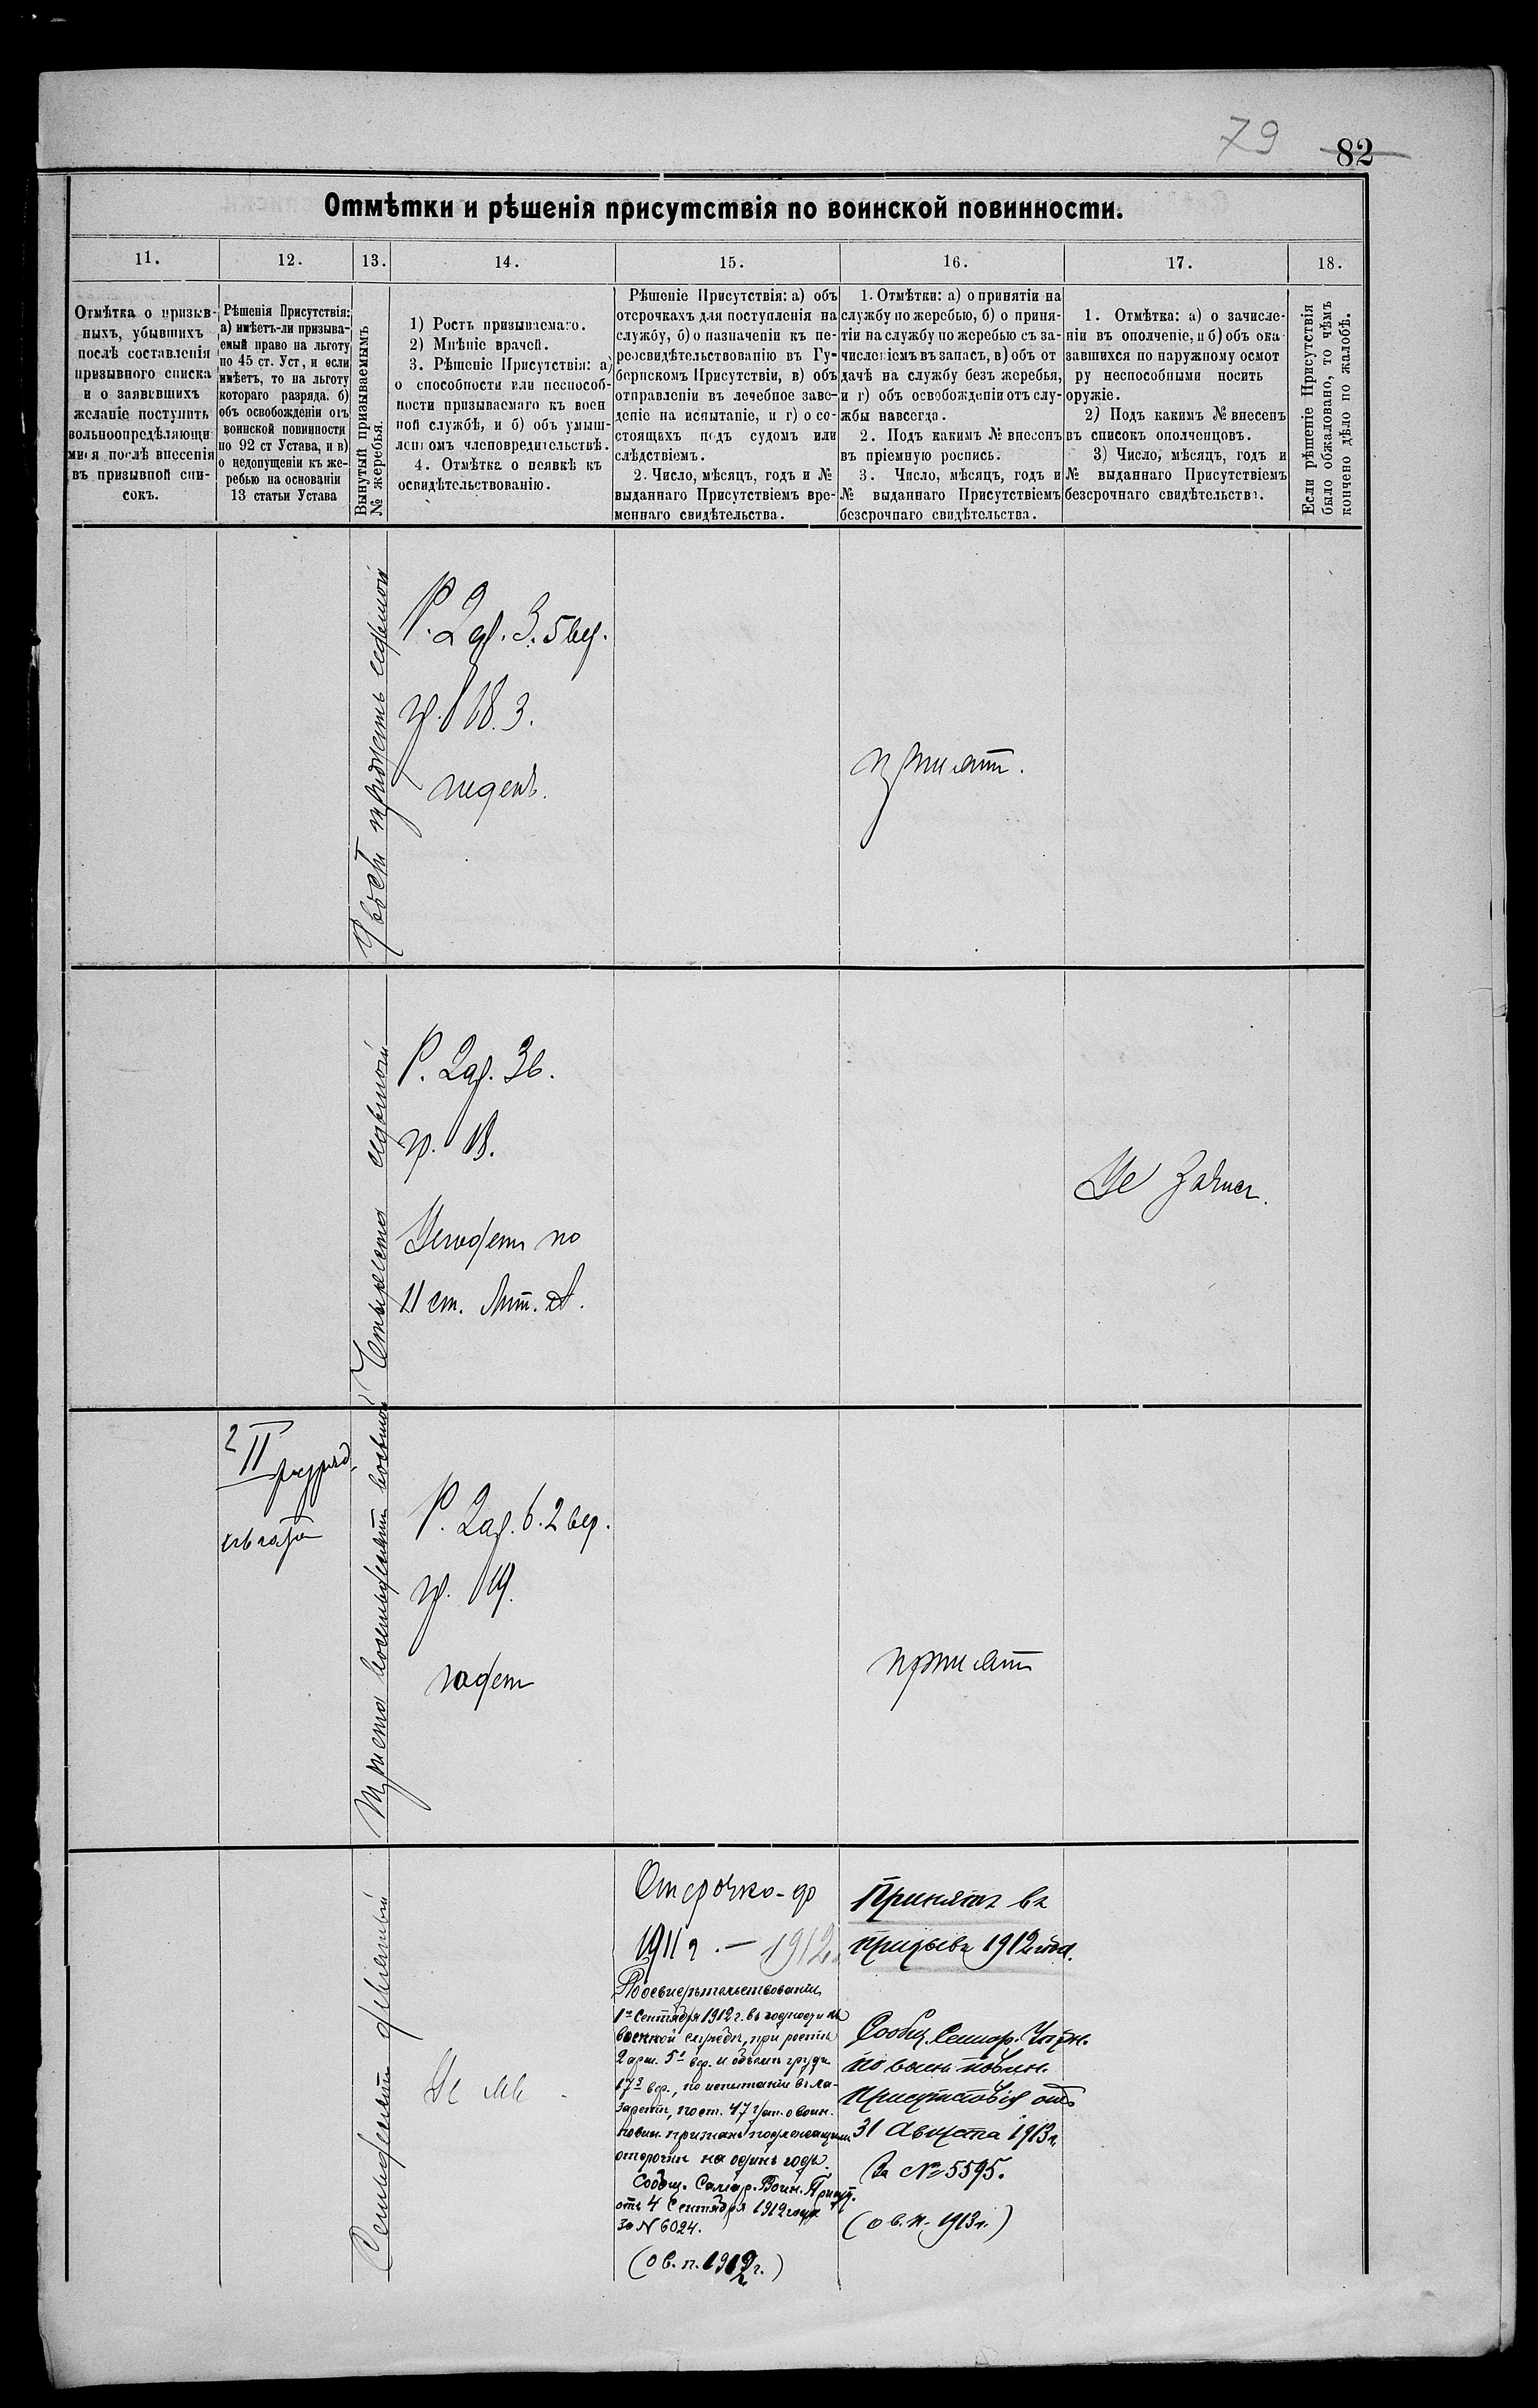 79
82
Отмѣтки и рѣшенія присутствія по воинской повинности.
11.
12.
13.
14.
15.
16.
17.
18.
Отмѣтка о призыв-
ныхъ, убывшихъ
послѣ составленія
призывного списка
и о заявевшихъ
желаніе поступить
вольноопредѣляющи
мися послѣ внесенія
въ призывной спи-
сокъ.
Рѣшенія Присутствія:
а) имѣетъ-ли призыва-
емый право на льготу
по 45 ст. Уст, и если
имѣетъ, то на льготу
котораго разряда. б)
объ освобожденіи отъ
воинской повинности
по 92 ст Устава, и в)
о недопущеніи къ же-
ребью на основаніи
13 статьи Устава
Вынутый призываемымъ
№ жеребья.
1) Ростъ призываемаго.
2) Мнѣніе врачей.
3. Рѣшеніе Присутствія: а)
о способности или неспособ-
ности призываемаго къ воен
ной службѣ, и б) объ умыш-
ленномъ членовредительствѣ.
4. Отмѣтка о неявкѣ къ
освидѣтельствованію.
Рѣшеніе Присутствія: а) объ
отсрочкахъ для поступленія на
службу, б) о назначеніи къ пе-
реосвидѣтельствованію въ Гу-
бернскомъ Присутствіи, в) объ
отправленіи въ лечебное заве-
деніе на испытаніе, и г) о со-
стоящихъ подъ судомъ или
слѣдствіемъ.
2. Число, мѣсяцъ, годъ и №
выданнаго Присутствіемъ вре-
меннаго свидѣтельства.
1. Отмѣтки: а) о принятіи на
службу по жеребью, б) о приня-
тіи на службу по жеребью съ за-
численіемъ въ запасъ, в) объ от
дачѣ на службу безъ жеребья,
и г) объ освобожденіи отъ слу-
жбы навсегда.
2. Подъ какимъ № внесенъ
въ пріемную роспись.
3. Число, мѣсяцъ, годъ и
№ выданнаго Присутствіемъ
безсрочнаго свидѣтельства.
1. Отмѣтка: а) о зачисле-
ніи въ ополченіе, и б) объ ока
завшихся по наружному осмот
ру неспособными носить
оружіе.
2) Подъ какимъ № внесенъ
въ списокъ ополченцовъ.
3) Число, мѣсяцъ, годъ и
№ выданнаго Присутствіемъ
безсрочнаго свидѣтельства.
Если рѣшеніе Присутствія
было обжаловано, то чѣмъ
кончено дѣло по жалобѣ.
Двѣсти тридцать седьмой
Р. 2 ар. 3.5 вер.
гр. 18.3.
годенъ.
принят.
Четыреста седьмой
Р. 2 ар. 3 в.
гр. 18.
Негоден по
11 ст. Лит. А.
Не зачисл.
Триста восемьдесят восьмой
II разряд
Р. 2 ар. 6.2 вер.
гр. 19.
годен
принят
Семьдесят девятый
Не яв
Отсрочка до
1911 г. — 1912
По освидѣтельствованіи
1го Сентября 1912 г. въ годности къ
военной службѣ, при ростѣ
2 арш. 5¹ вер. и объемѣ груди
17³ вер., по испытаніи въ ла-
заретѣ, по ст. 47 Уст. о воин.
повин. признанъ подлежащимъ
отсрочкѣ на одинъ годъ.
Сообщ. Самар. Воин. Присут.
отъ 4 Сентября 1912 года
за N 6024.
(о в. п. 1912 г.)
Принятъ въ
призывъ 1912 года.
Сообщ. Самар. Уѣздн.
по воин. повин.
присутствія отъ
31 Августа 1913 г.
за № 5595.
(о в. п. 1913 г.)